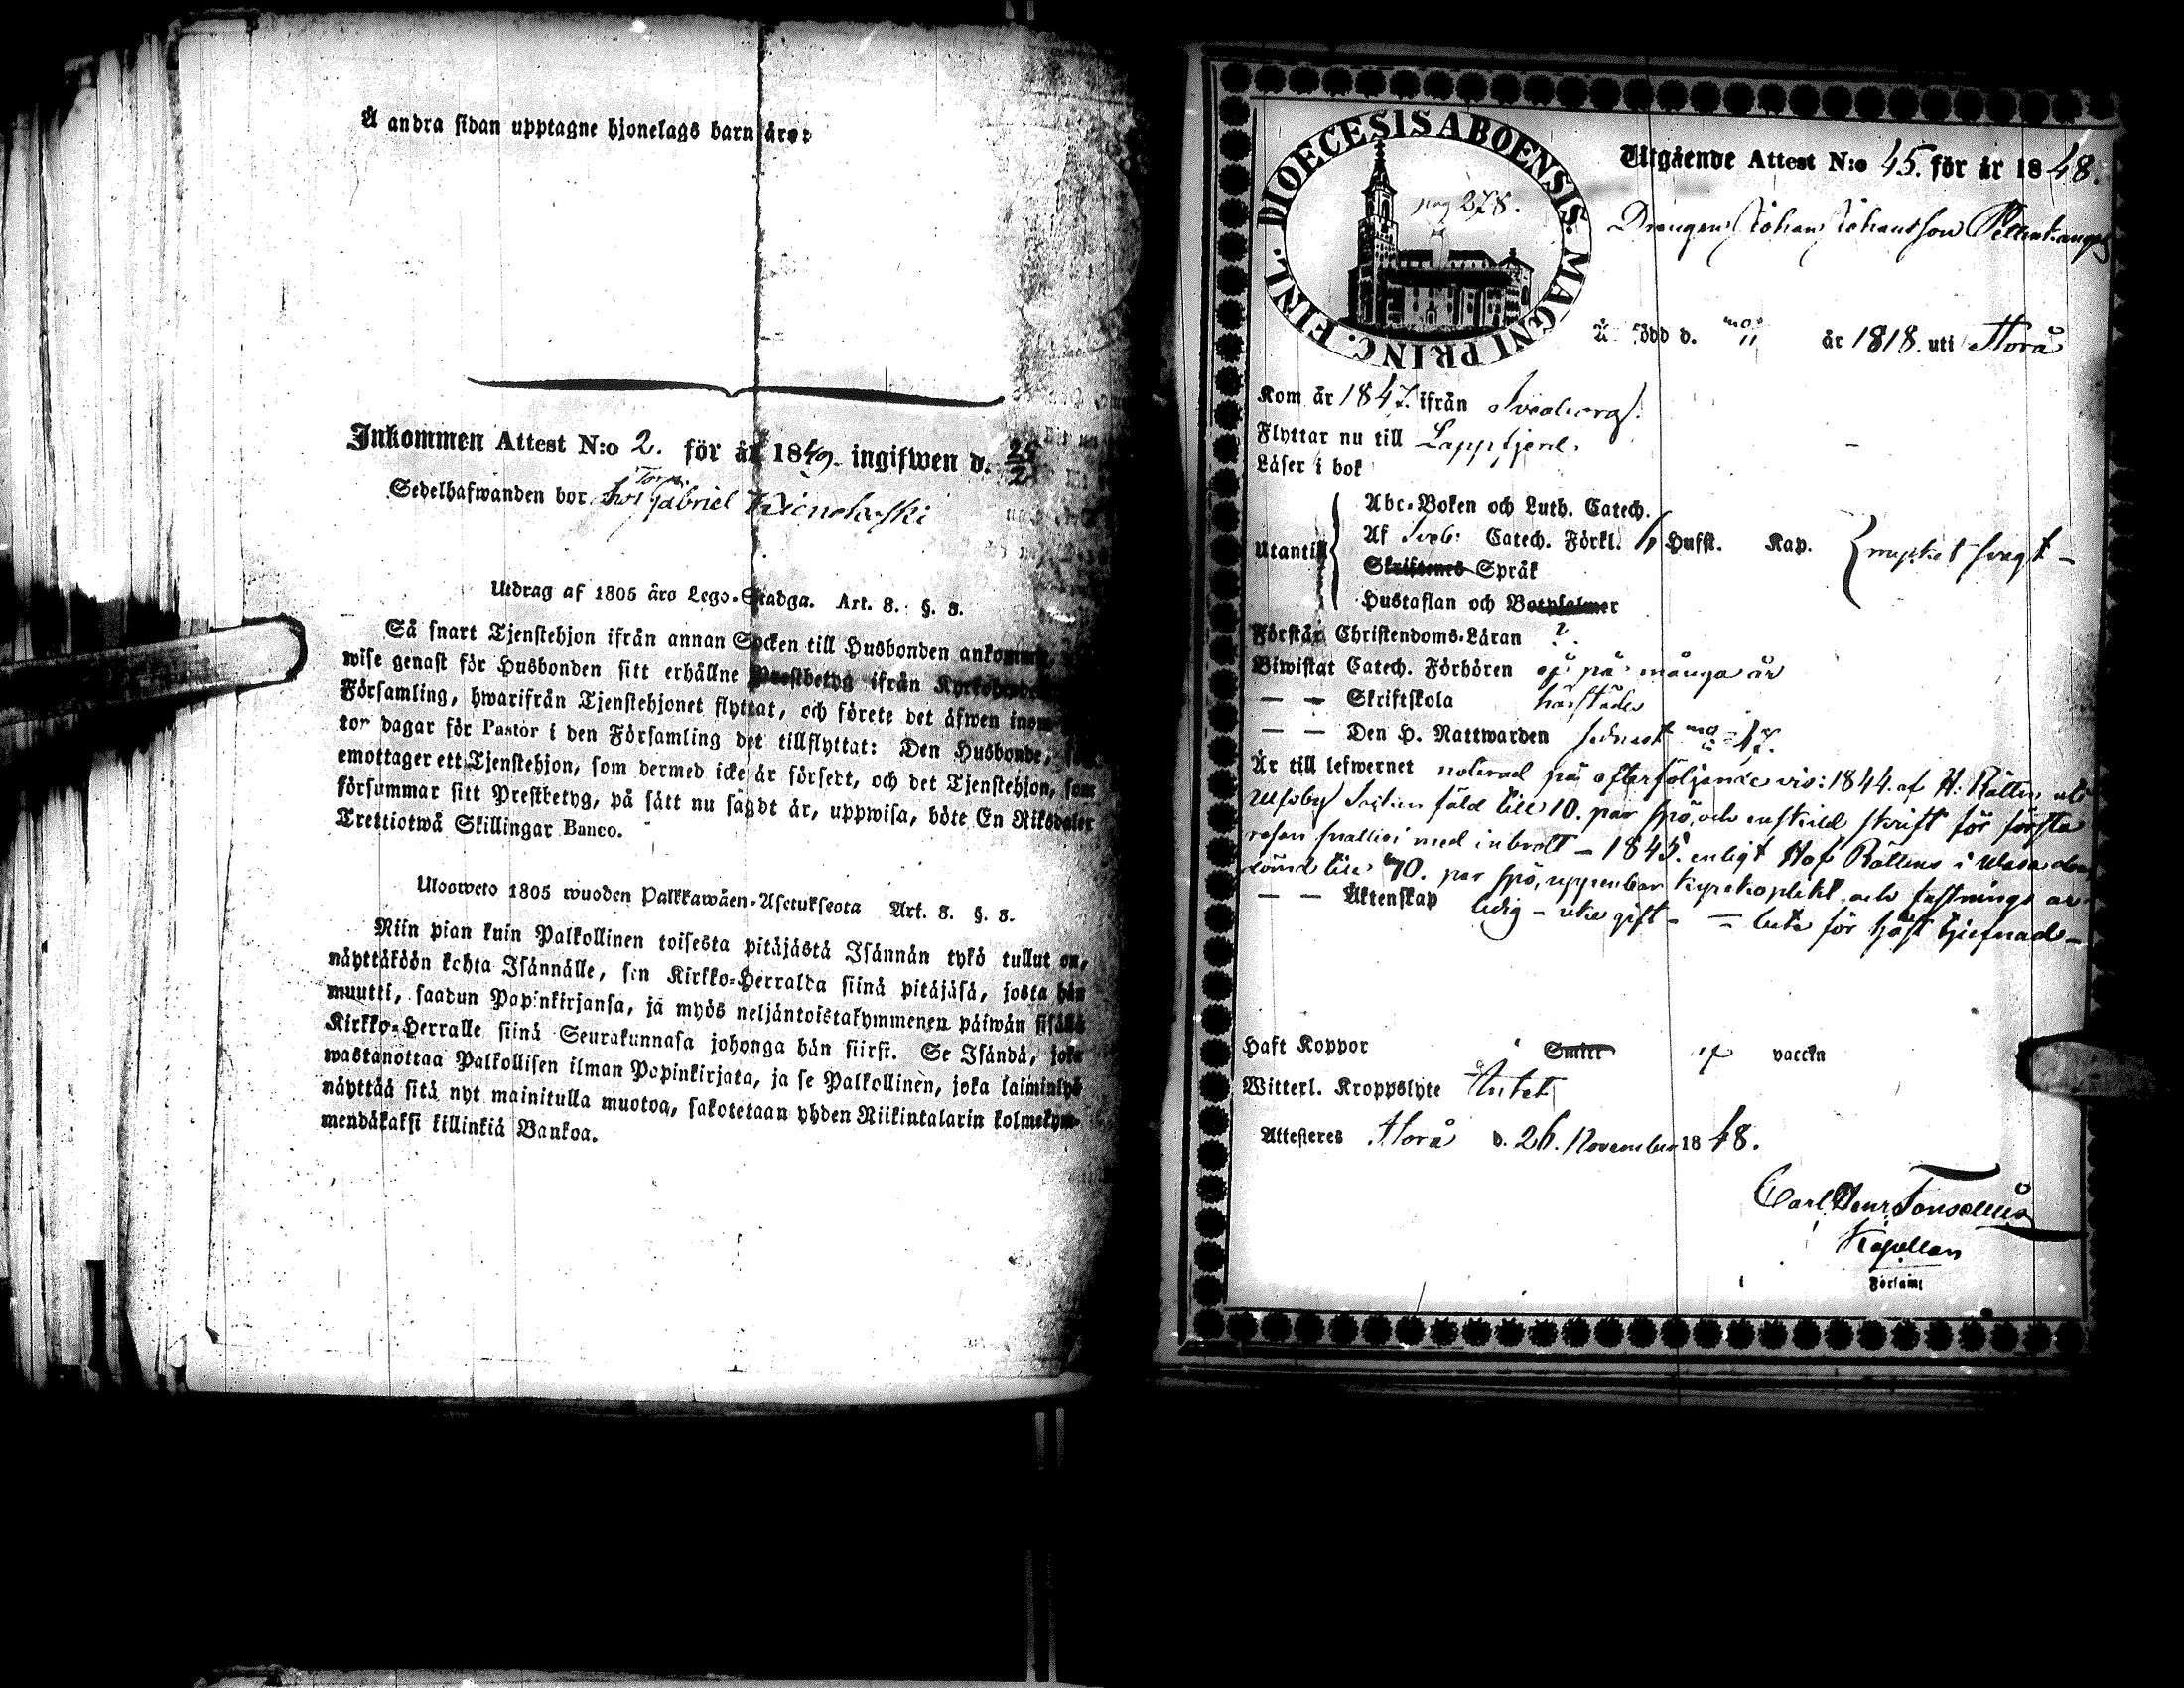 Å andra sidan upptagne hjonelags barn äro:
Inkommen Attest N:o 2. för år 1849. ingifwen d. 25/2
Torp.
Sedelhafwanden bor hos Gabriel
Utdrag af 1805 åro Lego-Stadga. Art. 8. §. 8.
Så snart Tjenstehjon ifrån annan Socken till Husbonden ankommit,
wise genast för Husbonden sitt erhållne Prestbetyg ifrån
Församling, hwarifrån Tjenstehjonet flyttat, och förete det äfwen inom
ton dagar för Pastor i den Församling det tillflyttat: Den Husbonde,
emottager ett Tjenstehjon, som dermed icke är försedt, och det Tjenstehjon, som
försummar sitt Prestbetyg, på sätt nu sagdt är, uppwisa, böte En Riksdaler
Trettiotwå Skillingar Banco.
Ulooweto 1805 wuoden Palkkawäen-Asetukseota Art. 8. §. 8.
Niin pian kuin Palkollinen toisesta pitäjästä Isännän tykö tullut on,
näyttäköön kohta Isännälle, sen Kirkko-Herralda siinä pitäjäsä, josta hän
muutti, saadun Papinkirjansa, ja myös neljäntoistakymmenen päiwän sisällä
Kirkko-Herralle siinä Seurakunnasa johonga hän siirsi. Se Isändä, joka
wastanottaa Palkollisen ilman Papinkirjata, ja se Palkollinen, joka laiminlyö
näyttää sitä nyt mainitulla muotoa, sakotetaan yhden Riikintalarin kolmekym-
mendäkaksi killinkiä Bankoa.
DIOECESIS ABOENSIS. MAGNI PRINC. FINL.
pag 278.
Utgående Attest N:o 45. för år 1848.
Drengen Johan Johansson
Ä född d. år 1818. uti Norå
Kom år 1847. ifrån Sveaborg.
Flyttar nu till Lappfjerd.
Läser i bok
Utantill
Abc-Boken och Luth. Catech.
Af Sveb: Catech. Förkl. 6 Hufst. Kap.
mycket svagt -
Skriftenes Språk
Hustaflan och Botpsalmer
Förstår Christendoms-Läran ?.
Biwistat Catech. Förhören ej på många år
— — Skriftskola härstädes
— — Den H. Nattwarden sednast 47.
Är till lefwernet noterad på efterföljande vis: 1844. af H. Rätten uti
Ulfsby Socken fäld till 10. par spö, och enskild skrift för första
resan snatteri med inbrott - 1845. enligt Hof Rättens i Wasa dom
dömd till 40. par spö, uppenbar kyrkoplikt och fästnings ar-
— — Äktenskap ledig - icke gift - = bete för häst tjufnad -
Haft Koppor Smitt vaccin
Witterl. Kroppslyte Intet
Attesteres Norå d. 26. November 1848.
Carl Henr. Tonselius
Kapellan
Församl